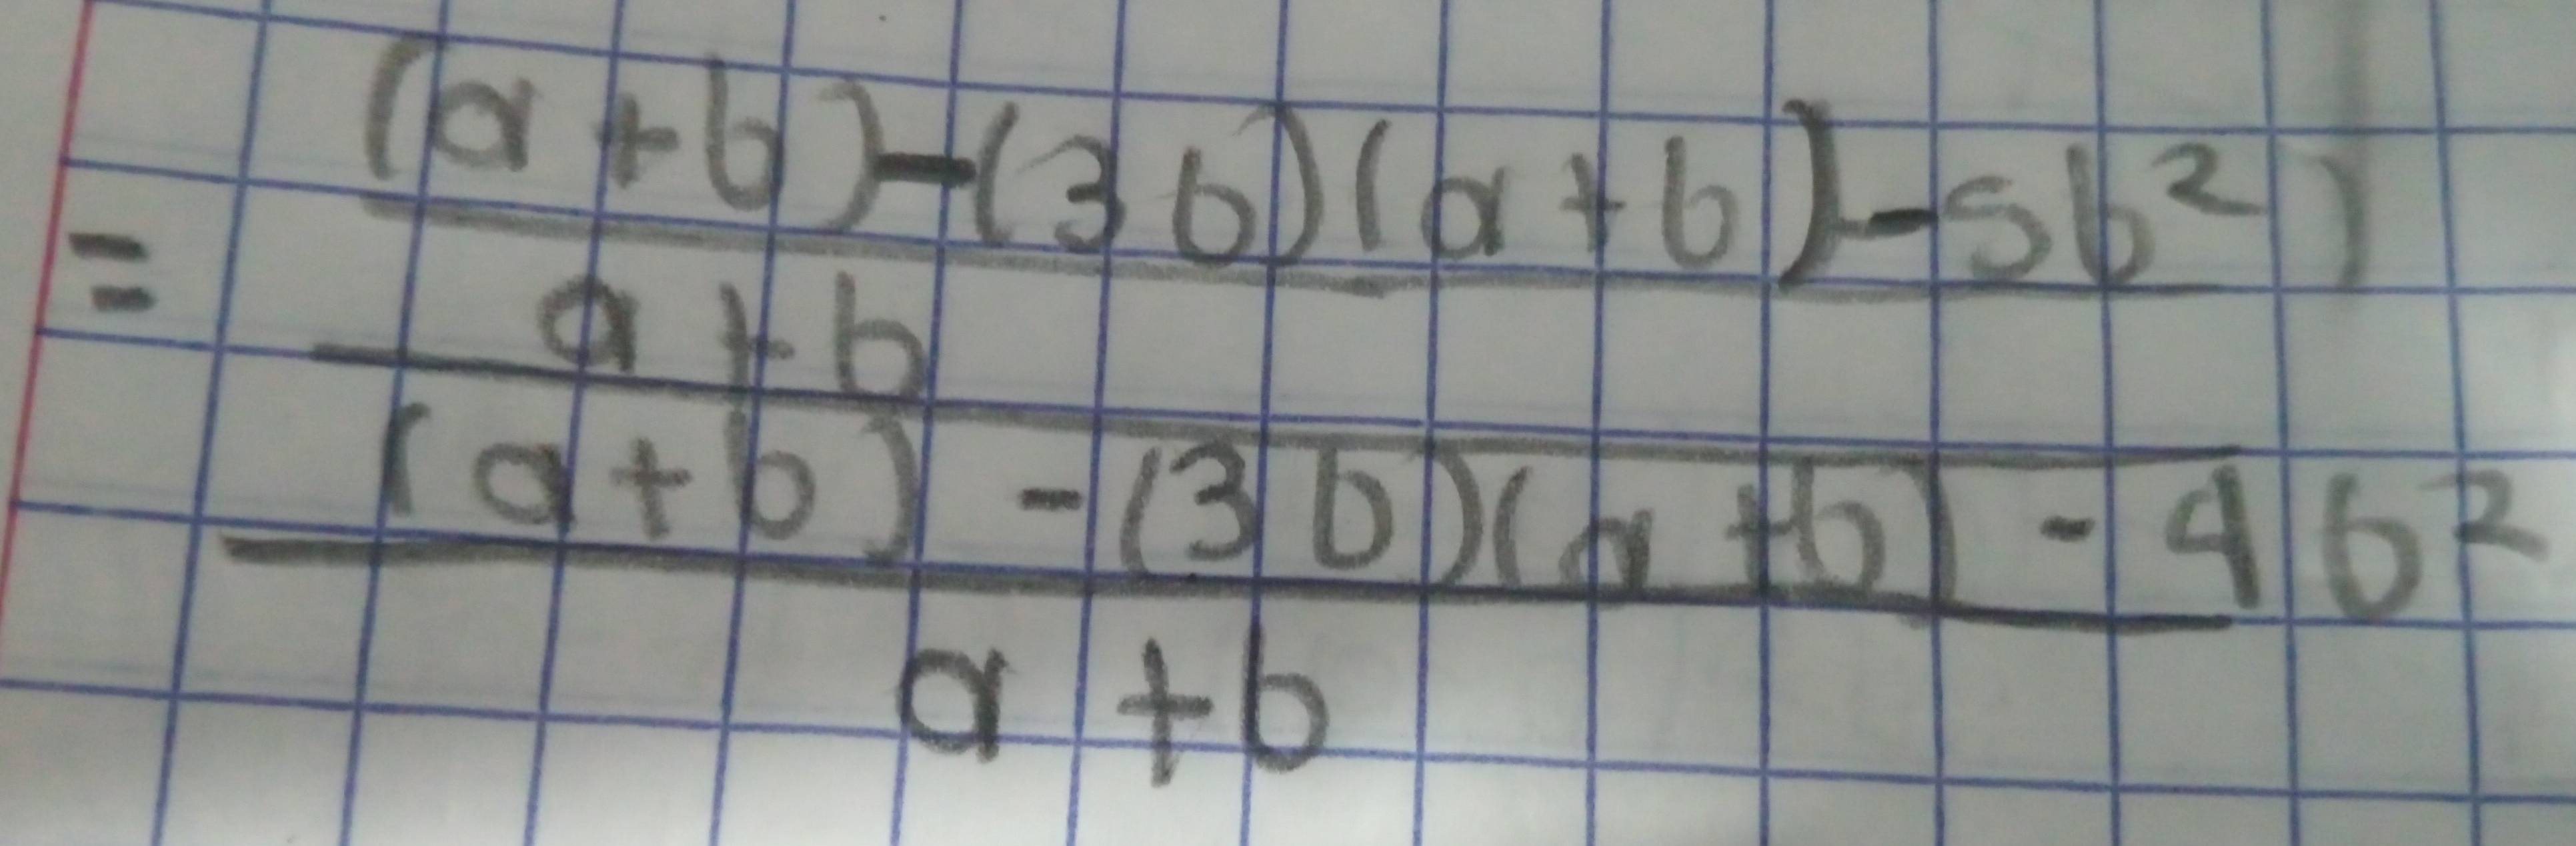 = (a+b)-(3b)(a+b)-5b²)
a+b
(a+b) -(3b)(a+b) - 4b²
a+b